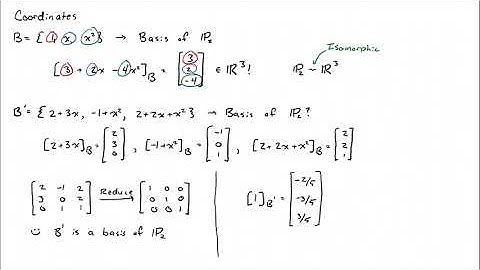 Coordinates
B = { 1, x, x² } → Basis of P₂
Isomorphic
[3 + 2x - 4x²]_B = [3 2 -4] ∈ ℝ³! P₂ ~ ℝ³
B' = { 2+3x, -1+x², 2+2x+x² } → Basis of P₂?
[2+3x]_B = [2 3 0], [-1+x²]_B = [-1 0 1], [2+2x+x²]_B = [2 2 1]
[2 -1 2 Reduce [1 0 0
3 0 2 → 0 1 0 [1]_B' = [-2/5 -3/5 3/5]
0 1 1] 0 0 1]
☺ B' is a basis of P₂